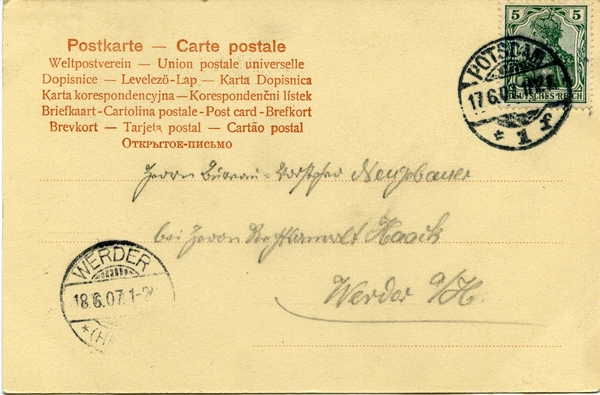 Postkarte — Carte postale
Weltpostverein — Union postale universelle
Dopisnice — Levelező-Lap — Karta Dopisnica
Karta korespondencyjna — Korespondenční lístek
Briefkaart - Cartolina postale - Post card - Brefkort
Brevkort — Tarjeta postal — Cartão postal
ОТКРЫТОЕ-ПИСЬМО
5 5
DEUTSCHES REICH
POTSDAM
17.6.07
* 1 f
Herrn Bureau-Vorsteher Neugebauer
bei Herrn Rechtsanwalt Haack
Werder a/H.
WERDER
18.6.07. 1-2
*(H